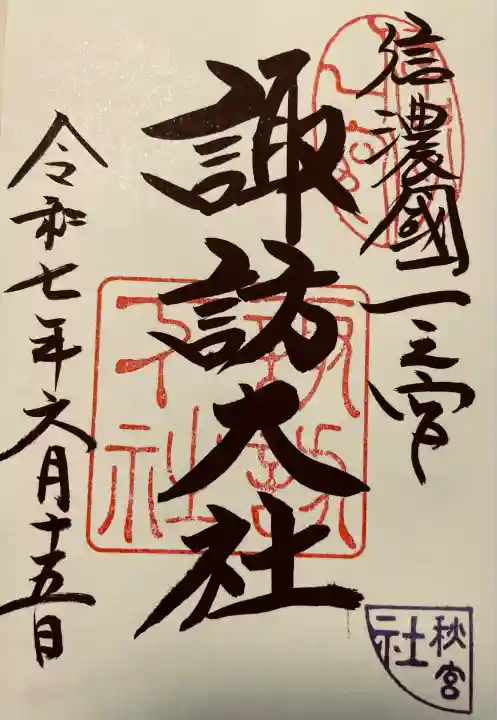 信濃國一之宮
諏訪大社
令和七年六月十五日
諏訪下社
秋宮
社